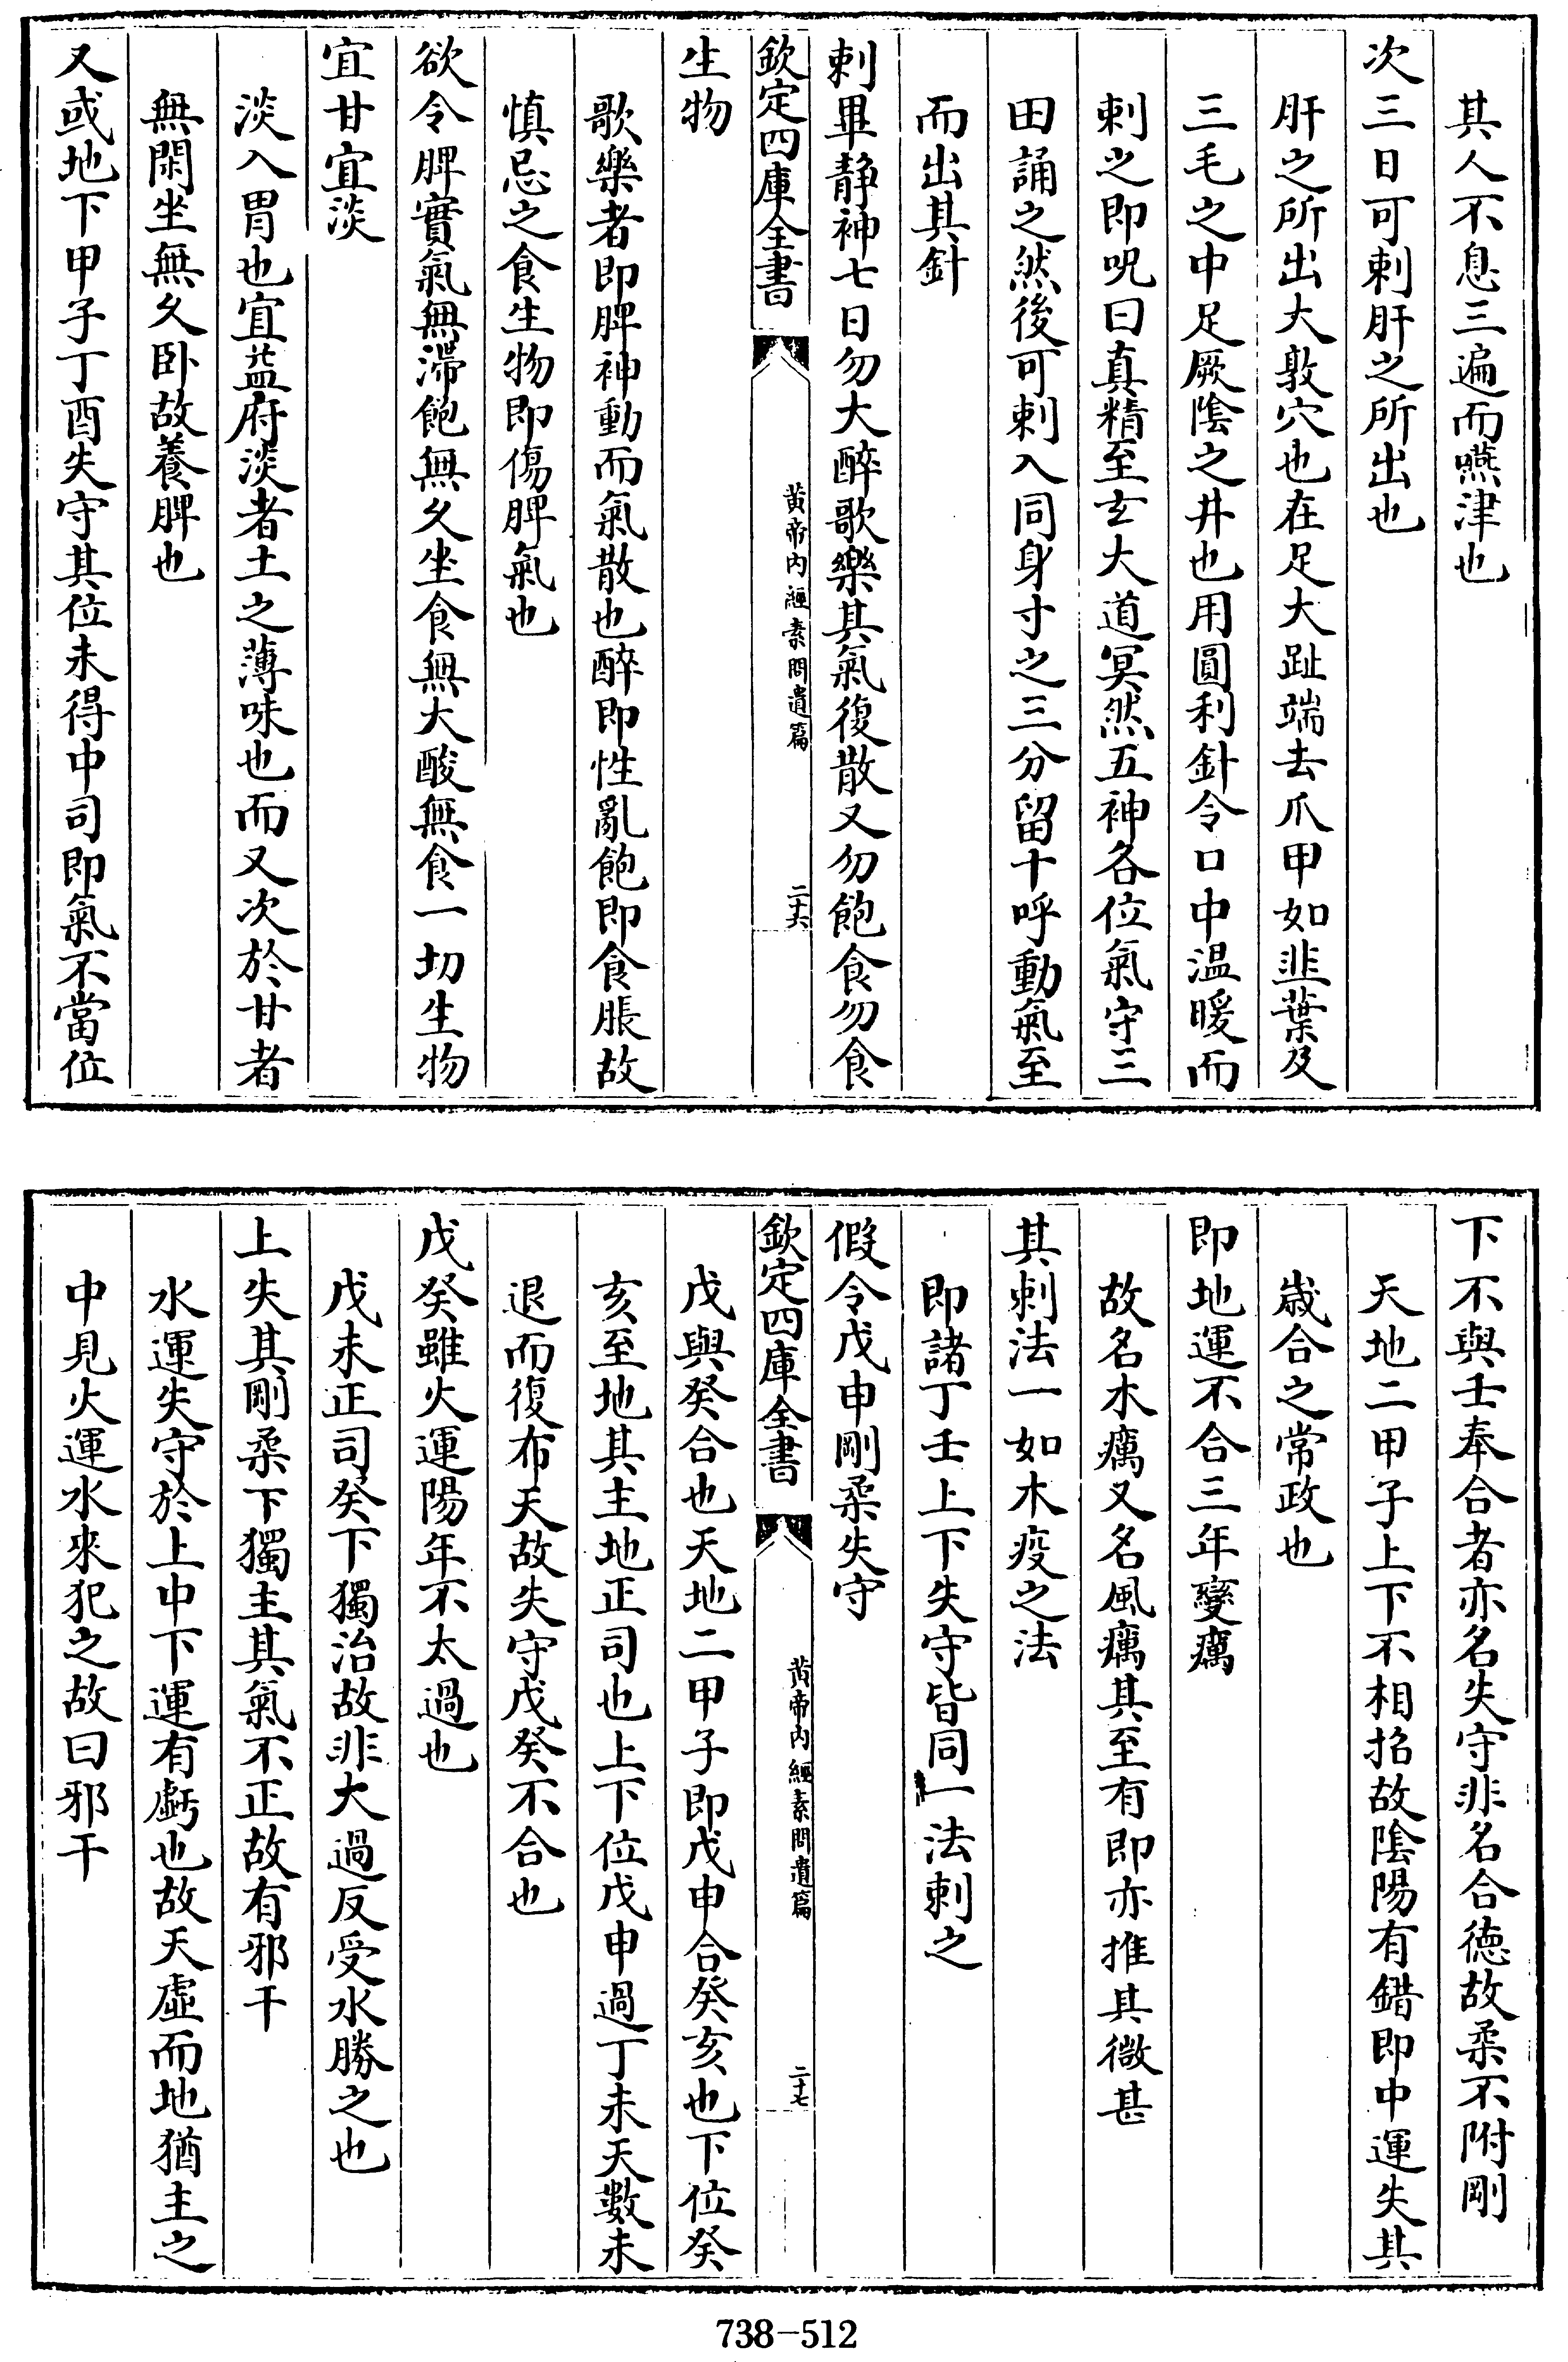 其人不息三遍而嚥津也
次三日可刺肝之所出也
肝之所出大敦穴也在足大趾端去爪甲如韭葉及
三毛之中足厥陰之井也用圓利針令口中温暖而
刺之即呪曰真精至玄大道冥然五神各位氣守三
田誦之然後可刺入同身寸之三分留十呼動氣至
而出其針
刺畢静神七日勿大醉歌樂其氣復散又勿飽食勿食
欽定四庫全書
黄帝内經素問遺篇
二十六
生物
歌樂者即脾神動而氣散也醉即性亂飽即食脹故
慎忌之食生物即傷脾氣也
欲令脾實氣無滯飽無久坐食無大酸無食一切生物
宜甘宜淡
淡入胃也宜益府淡者土之薄味也而又次於甘者
無閑坐無久卧故養脾也
又或地下甲子丁酉失守其位未得中司即氣不當位
下不與壬奉合者亦名失守非名合德故柔不附剛
天地二甲子上下不相招故陰陽有錯即中運失其
歲合之常政也
即地運不合三年變癘
故名木癘又名風癘其至有即亦推其微甚
其刺法一如木疫之法
即諸丁壬上下失守皆同一法刺之
假令戊申剛柔失守
欽定四庫全書
黄帝内經素問遺篇
二十七
戊與癸合也天地二甲子即戊申合癸亥也下位癸
亥至地其主地正司也上下位戊申過丁未天數未
退而復布天故失守戊癸不合也
戊癸雖火運陽年不太過也
戊未正司癸下獨治故非大過反受水勝之也
上失其剛柔下獨主其氣不正故有邪干
水運失守於上中下運有虧也故天虛而地猶主之
中見火運水來犯之故曰邪干
738-512